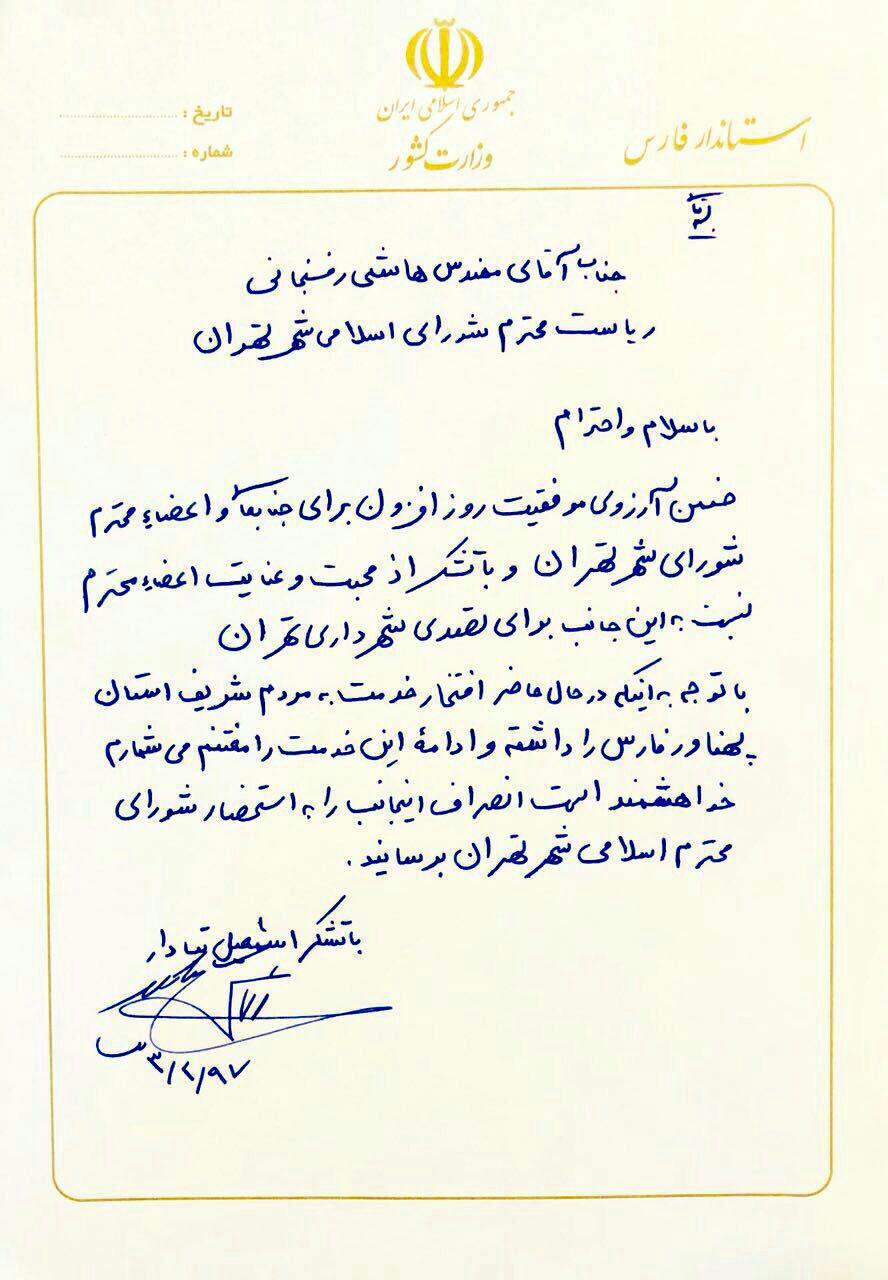 جمهوری اسلامی ایران
وزارت کشور
استاندار فارس
تاریخ :
شماره :
جناب آقای مهندس هاشمی رفسنجانی
ریاست محترم شورای اسلامی شهر تهران
باسلام و احترام
ضمن آرزوی موفقیت روز افزون برای جنابعالی و اعضاء محترم
شورای شهر تهران و با تشکر از محبت و عنایت اعضاء محترم
نسبت به این جانب برای تصدی شهرداری تهران
با توجه به اینکه در حال حاضر افتخار خدمت به مردم شریف استان
پهناور فارس را داشته و ادامهٔ این خدمت را مغتنم می شمارم
خواهشمند است انصراف اینجانب را به استحضار شورای
محترم اسلامی شهر تهران برسانید .
باتشکر اسمعیل تبادار
۹۷/۲/۳